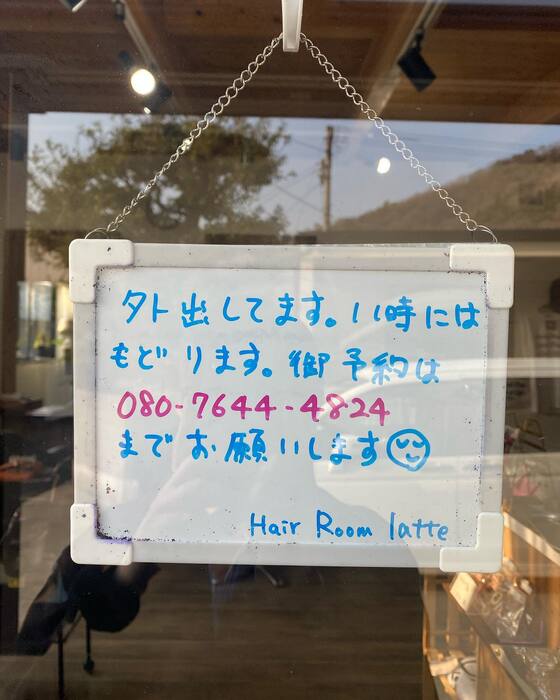 外出してます。11時には
もどります。御予約は
080-7644-4824
までお願いします
Hair Room latte